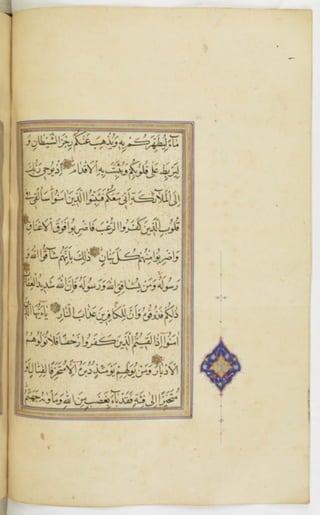 مَآءً لِيُطَهِّرَكُمْ بِهِ وَيُذْهِبَ عَنْكُمْ رِجْزَ الشَّيْطَانِ وَ
لِيَرْبِطَ عَلَى قُلُوبِكُمْ وَيُثَبِّتَ بِهِ الْأَقْدَامَ إِذْ يُوحِي رَبُّكَ
إِلَى الْمَلَائِكَةِ أَنِّي مَعَكُمْ فَثَبِّتُوا الَّذِينَ آمَنُوا سَأُلْقِي فِي
قُلُوبِ الَّذِينَ كَفَرُوا الرُّعْبَ فَاضْرِبُوا فَوْقَ الْأَعْنَاقِ
وَاضْرِبُوا مِنْهُمْ كُلَّ بَنَانٍ ذَلِكَ بِأَنَّهُمْ شَاقُّوا اللَّهَ وَ
رَسُولَهُ وَمَنْ يُشَاقِقِ اللَّهَ وَرَسُولَهُ فَإِنَّ اللَّهَ شَدِيدُ الْعِقَابِ
ذَلِكُمْ فَذُوقُوهُ وَأَنَّ لِلْكَافِرِينَ عَذَابَ النَّارِ يَا أَيُّهَا الَّذِينَ
آمَنُوا إِذَا لَقِيتُمُ الَّذِينَ كَفَرُوا زَحْفًا فَلَا تُوَلُّوهُمُ
الْأَدْبَارَ وَمَنْ يُوَلِّهِمْ يَوْمَئِذٍ دُبُرَهُ إِلَّا مُتَحَرِّفًا لِقِتَالٍ أَوْ
مُتَحَيِّزًا إِلَى فِئَةٍ فَقَدْ بَآءَ بِغَضَبٍ مِنَ اللَّهِ وَمَأْوَاهُ جَهَنَّمُ